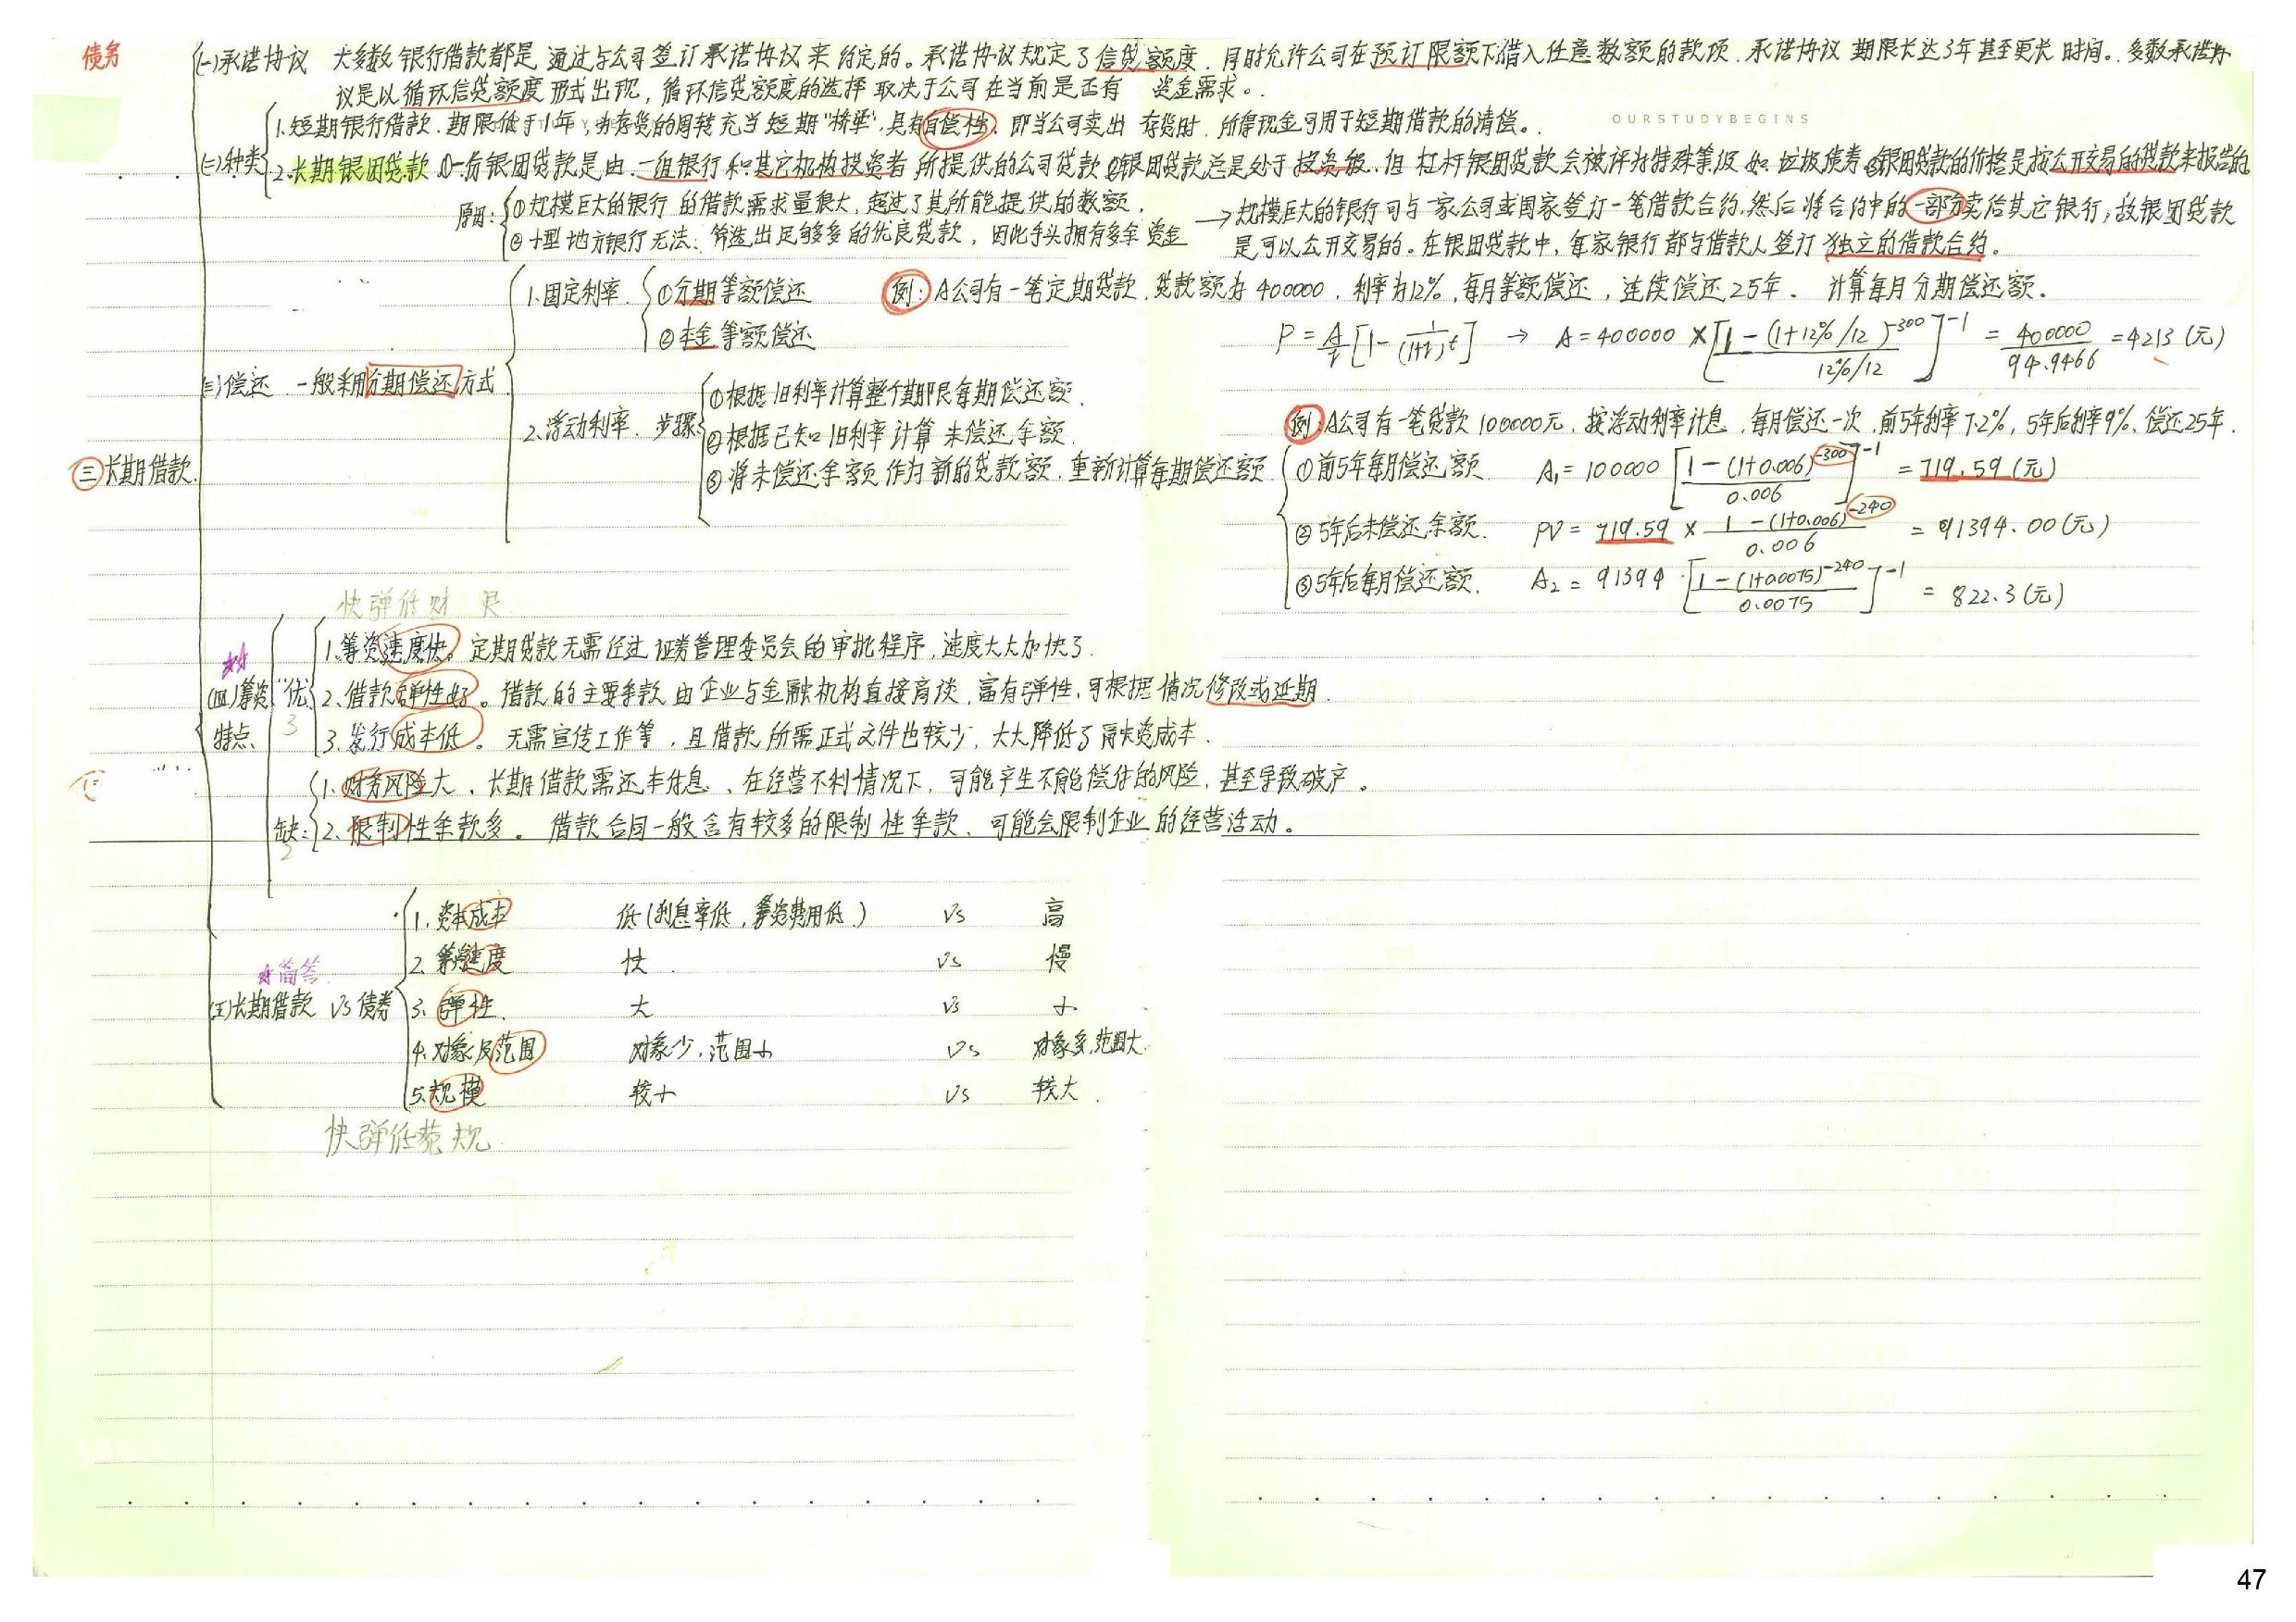 债务
(一)承诺协议 大多数银行借款都是通过与公司签订承诺协议来约定的。承诺协议规定了信贷额度,同时允许公司在预订限额下借入任意数额的款项,承诺协议期限长达3年甚至更长时间。多数承诺协
议是以循环信贷额度形式出现,循环信贷额度的选择取决于公司在当前是否有资金需求。
(二)种类
1.短期银行借款.期限低于1年,为存货的周转充当短期“桥梁”,具有自偿性.即当公司卖出存货时,所得现金可用于短期借款的清偿。
OURSTUDYBEGINS
2.长期银团贷款 ①一份银团贷款是由一组银行和其它机构投资者所提供的公司贷款②银团贷款总是处于投资级.但杠杆银团贷款会被评为特殊等级如垃圾债券③银团贷款的价格是按公开交易的贷款来报告的
原因:①规模巨大的银行的借款需求量很大,超过了其所能提供的数额.
②小型地方银行无法筛选出足够多的优良贷款,因此手头拥有多余资金
→规模巨大的银行可与一家公司或国家签订一笔借款合约,然后将合约中的一部分卖给其它银行,故银团贷款
是可以公开交易的。在银团贷款中,每家银行都与借款人签订独立的借款合约。
(三)偿还 一般采用分期偿还方式
1.固定利率 ①分期等额偿还
②本金等额偿还
例:A公司有一笔定期贷款,贷款额为400000,利率为12%,每月等额偿还,连续偿还25年. 计算每月分期偿还额.
P=A/i[1-1/(1+i)^t] → A=400000×[(1-(1+12%/12)^-300)/(12%/12)]^-1=400000/94.9466=4213(元)
2.浮动利率. 步骤
①根据旧利率计算整个期限每期偿还额.
②根据已知旧利率计算未偿还余额.
③将未偿还余额作为新的贷款额.重新计算每期偿还额
例:A公司有一笔贷款100000元,按浮动利率计息,每月偿还一次,前5年利率7.2%,5年后利率9%,偿还25年.
①前5年每月偿还额 A₁=100000[(1-(1+0.006)^-300)/0.006]^-1=719.59(元)
②5年后未偿还余额. PV=719.59×(1-(1+0.006)^-240)/0.006=91394.00(元)
③5年后每月偿还额. A₂=91394[(1-(1+0.0075)^-240)/0.0075]^-1=822.3(元)
㊂长期借款
快弹低财 限
(四)筹资特点
优 3
1.筹资速度快。定期贷款无需经过证券管理委员会的审批程序,速度大大加快了.
2.借款弹性好。借款的主要条款由企业与金融机构直接商谈,富有弹性,可根据情况修改或延期.
3.发行成本低。无需宣传工作等,且借款所需正式文件也较少,大大降低了融资成本.
缺: 2
1.财务风险大.长期借款需还本付息、在经营不利情况下,可能产生不能偿付的风险,甚至导致破产。
2.限制性条款多。借款合同一般含有较多的限制性条款,可能会限制企业的经营活动。
简答
(五)长期借款 VS 债券
1.资本成本 低(利息率低,筹资费用低) VS 高
2.筹资速度 快 VS 慢
3.弹性. 大 VS 小
4.对象及范围 对象少,范围小 VS 对象多,范围大
5.规模 较小 VS 较大.
快弹低范规
47